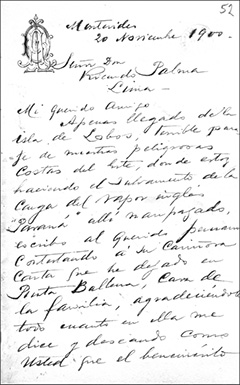 52
Montevideo
20 Noviembre 1900.-
Señor Don
Ricardo Palma
Lima -
Mi querido amigo
Apenas llegado de la
isla de Lobos, terrible para
je de nuestras peligrosas
Costas del Este, donde estoy
haciendo el Salvamento de la
Carga del vapor inglés
"Paraná" allí naufragado,
escribo al querido
Contestando á su cariñosa
Carta que he dejado en
Punta Ballena, Casa de
la familia, agradeciéndole
todo cuanto en ella me
dice y deseando como
Usted que el benemérito